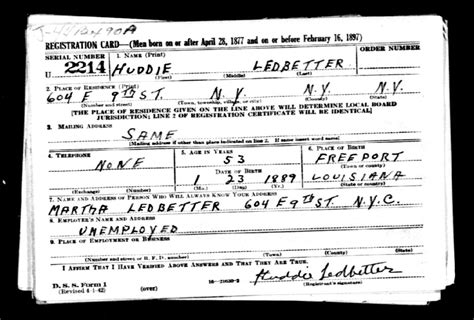 REGISTRATION CARD—(Men born on or after April 28, 1877 and on or before February 16, 1897)
SERIAL NUMBER 1. NAME (Print) ORDER NUMBER
U 2214 HUDDIE LEDBETTER
(First) (Middle) (Last)
2. PLACE OF RESIDENCE (Print)
604 E 9TH ST. N.Y. N.Y. N.Y.
(Number and street) (Town, township, village, or city) (County) (State)
[THE PLACE OF RESIDENCE GIVEN ON THE LINE ABOVE WILL DETERMINE LOCAL BOARD
JURISDICTION; LINE 2 OF REGISTRATION CERTIFICATE WILL BE IDENTICAL]
3. MAILING ADDRESS
SAME
[Mailing address if other than place indicated on line 2. If same insert word same]
4. TELEPHONE 5. AGE IN YEARS 6. PLACE OF BIRTH
NONE 53 FREEPORT
DATE OF BIRTH (Town or county)
1 23 1889 LOUISIANA
(Exchange) (Number) (Mo.) (Day) (Yr.) (State or country)
7. NAME AND ADDRESS OF PERSON WHO WILL ALWAYS KNOW YOUR ADDRESS
MARTHA LEDBETTER 604 E 9TH ST. N.Y.C.
8. EMPLOYER'S NAME AND ADDRESS
UNEMPLOYED
9. PLACE OF EMPLOYMENT OR BUSINESS
(Number and street or R. F. D. number) (Town) (County) (State)
I AFFIRM THAT I HAVE VERIFIED ABOVE ANSWERS AND THAT THEY ARE TRUE.
Huddie Ledbetter
D. S. S. Form 1
(Revised 4-1-42) (over) (Registrant's signature)